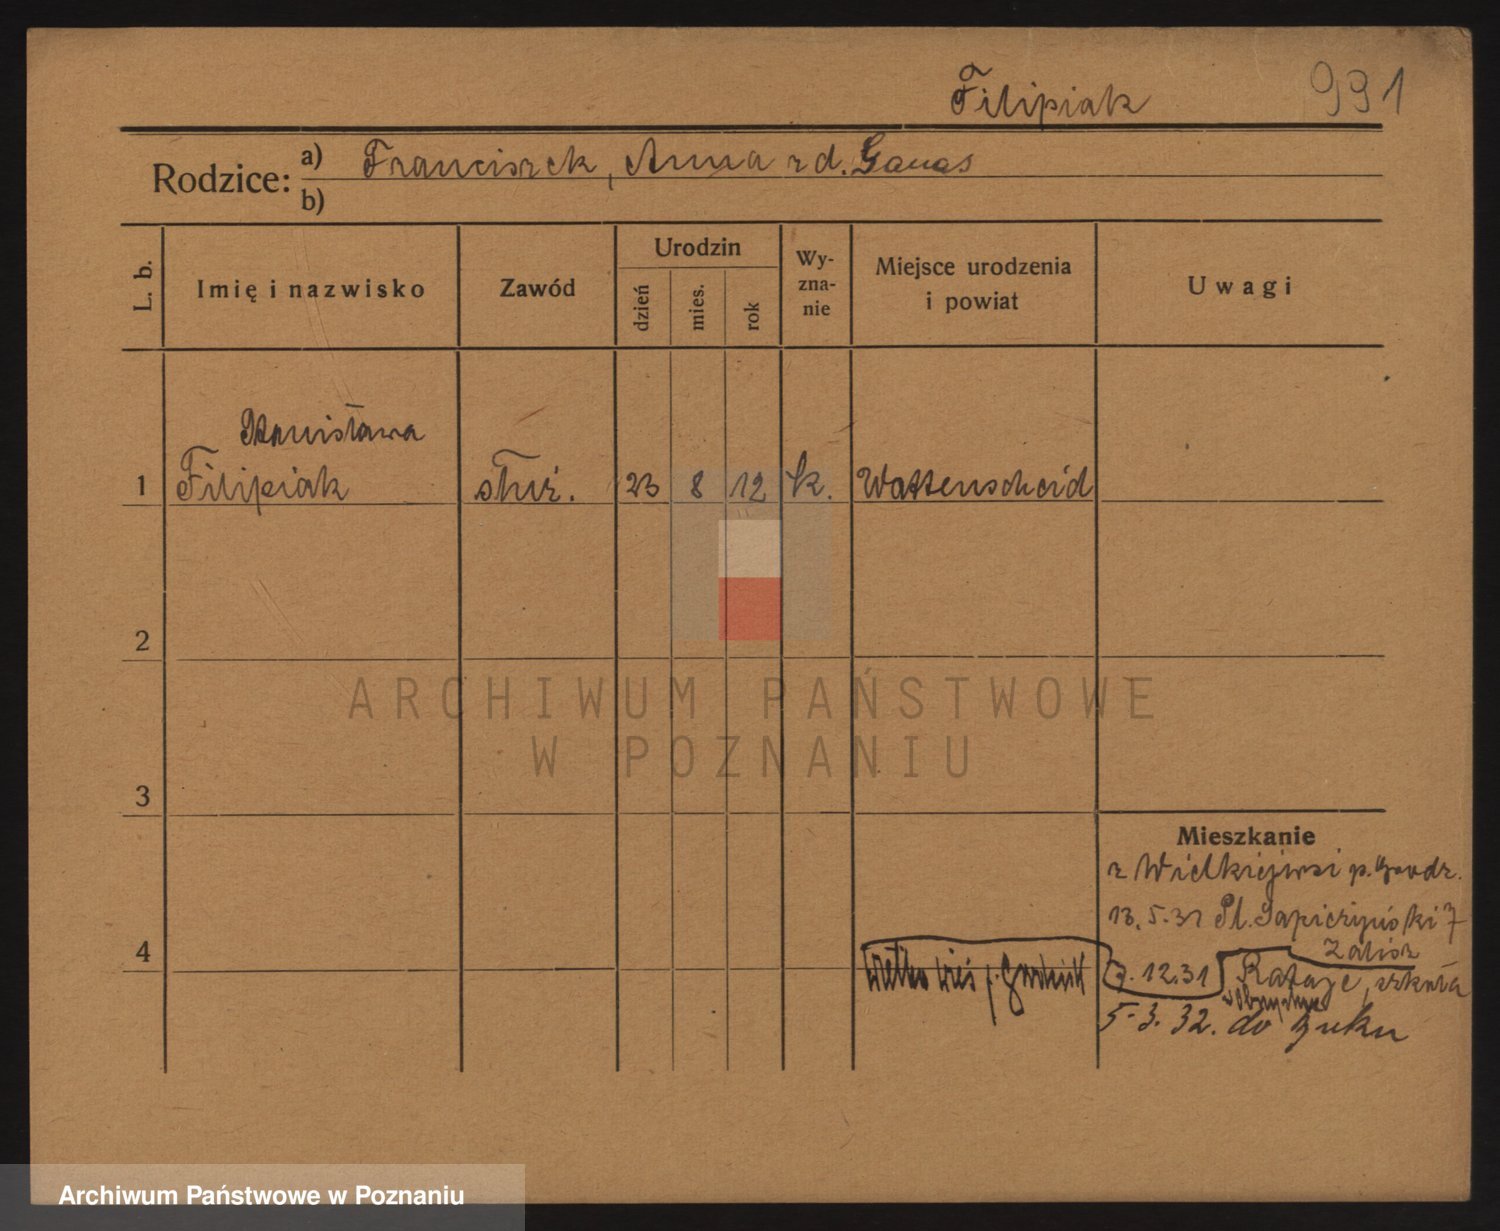 Filipiak 991
Rodzice: a) Franciszek, Anna z d. Ganas
b)
L. b. Imię i nazwisko Zawód Urodzin dzień mies. rok Wy-zna-nie Miejsce urodzenia i powiat Uwagi
Stanisława
1 Filipiak służ. 23 8 12 k. Wattenscheid
2
ARCHIWUM PAŃSTWOWE
W POZNANIU
3
Mieszkanie
z Wielkiejwsi p. Grodz.
13.5.31 Pl. Sapieżyński 7
4 Wielka wieś p. Grodzisk
12.31 Rataje, szkoła
5.3.32. do Buku
Archiwum Państwowe w Poznaniu